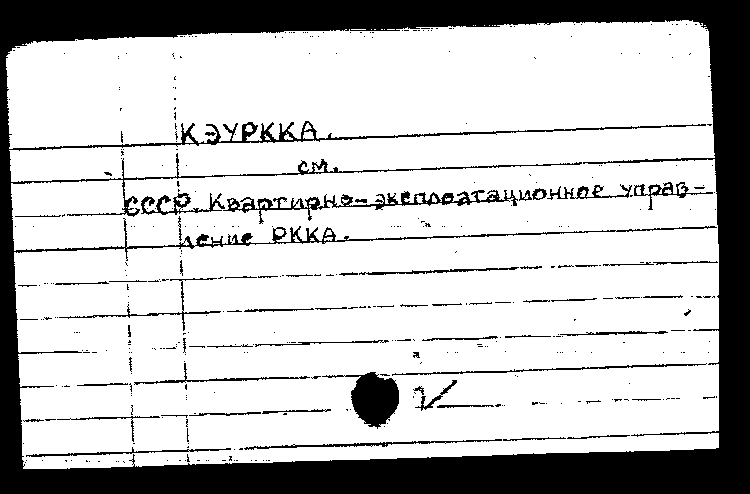 КЭУРККА.
см.
СССР. Квартирно-эксплоатационное управ-
ление РККА.